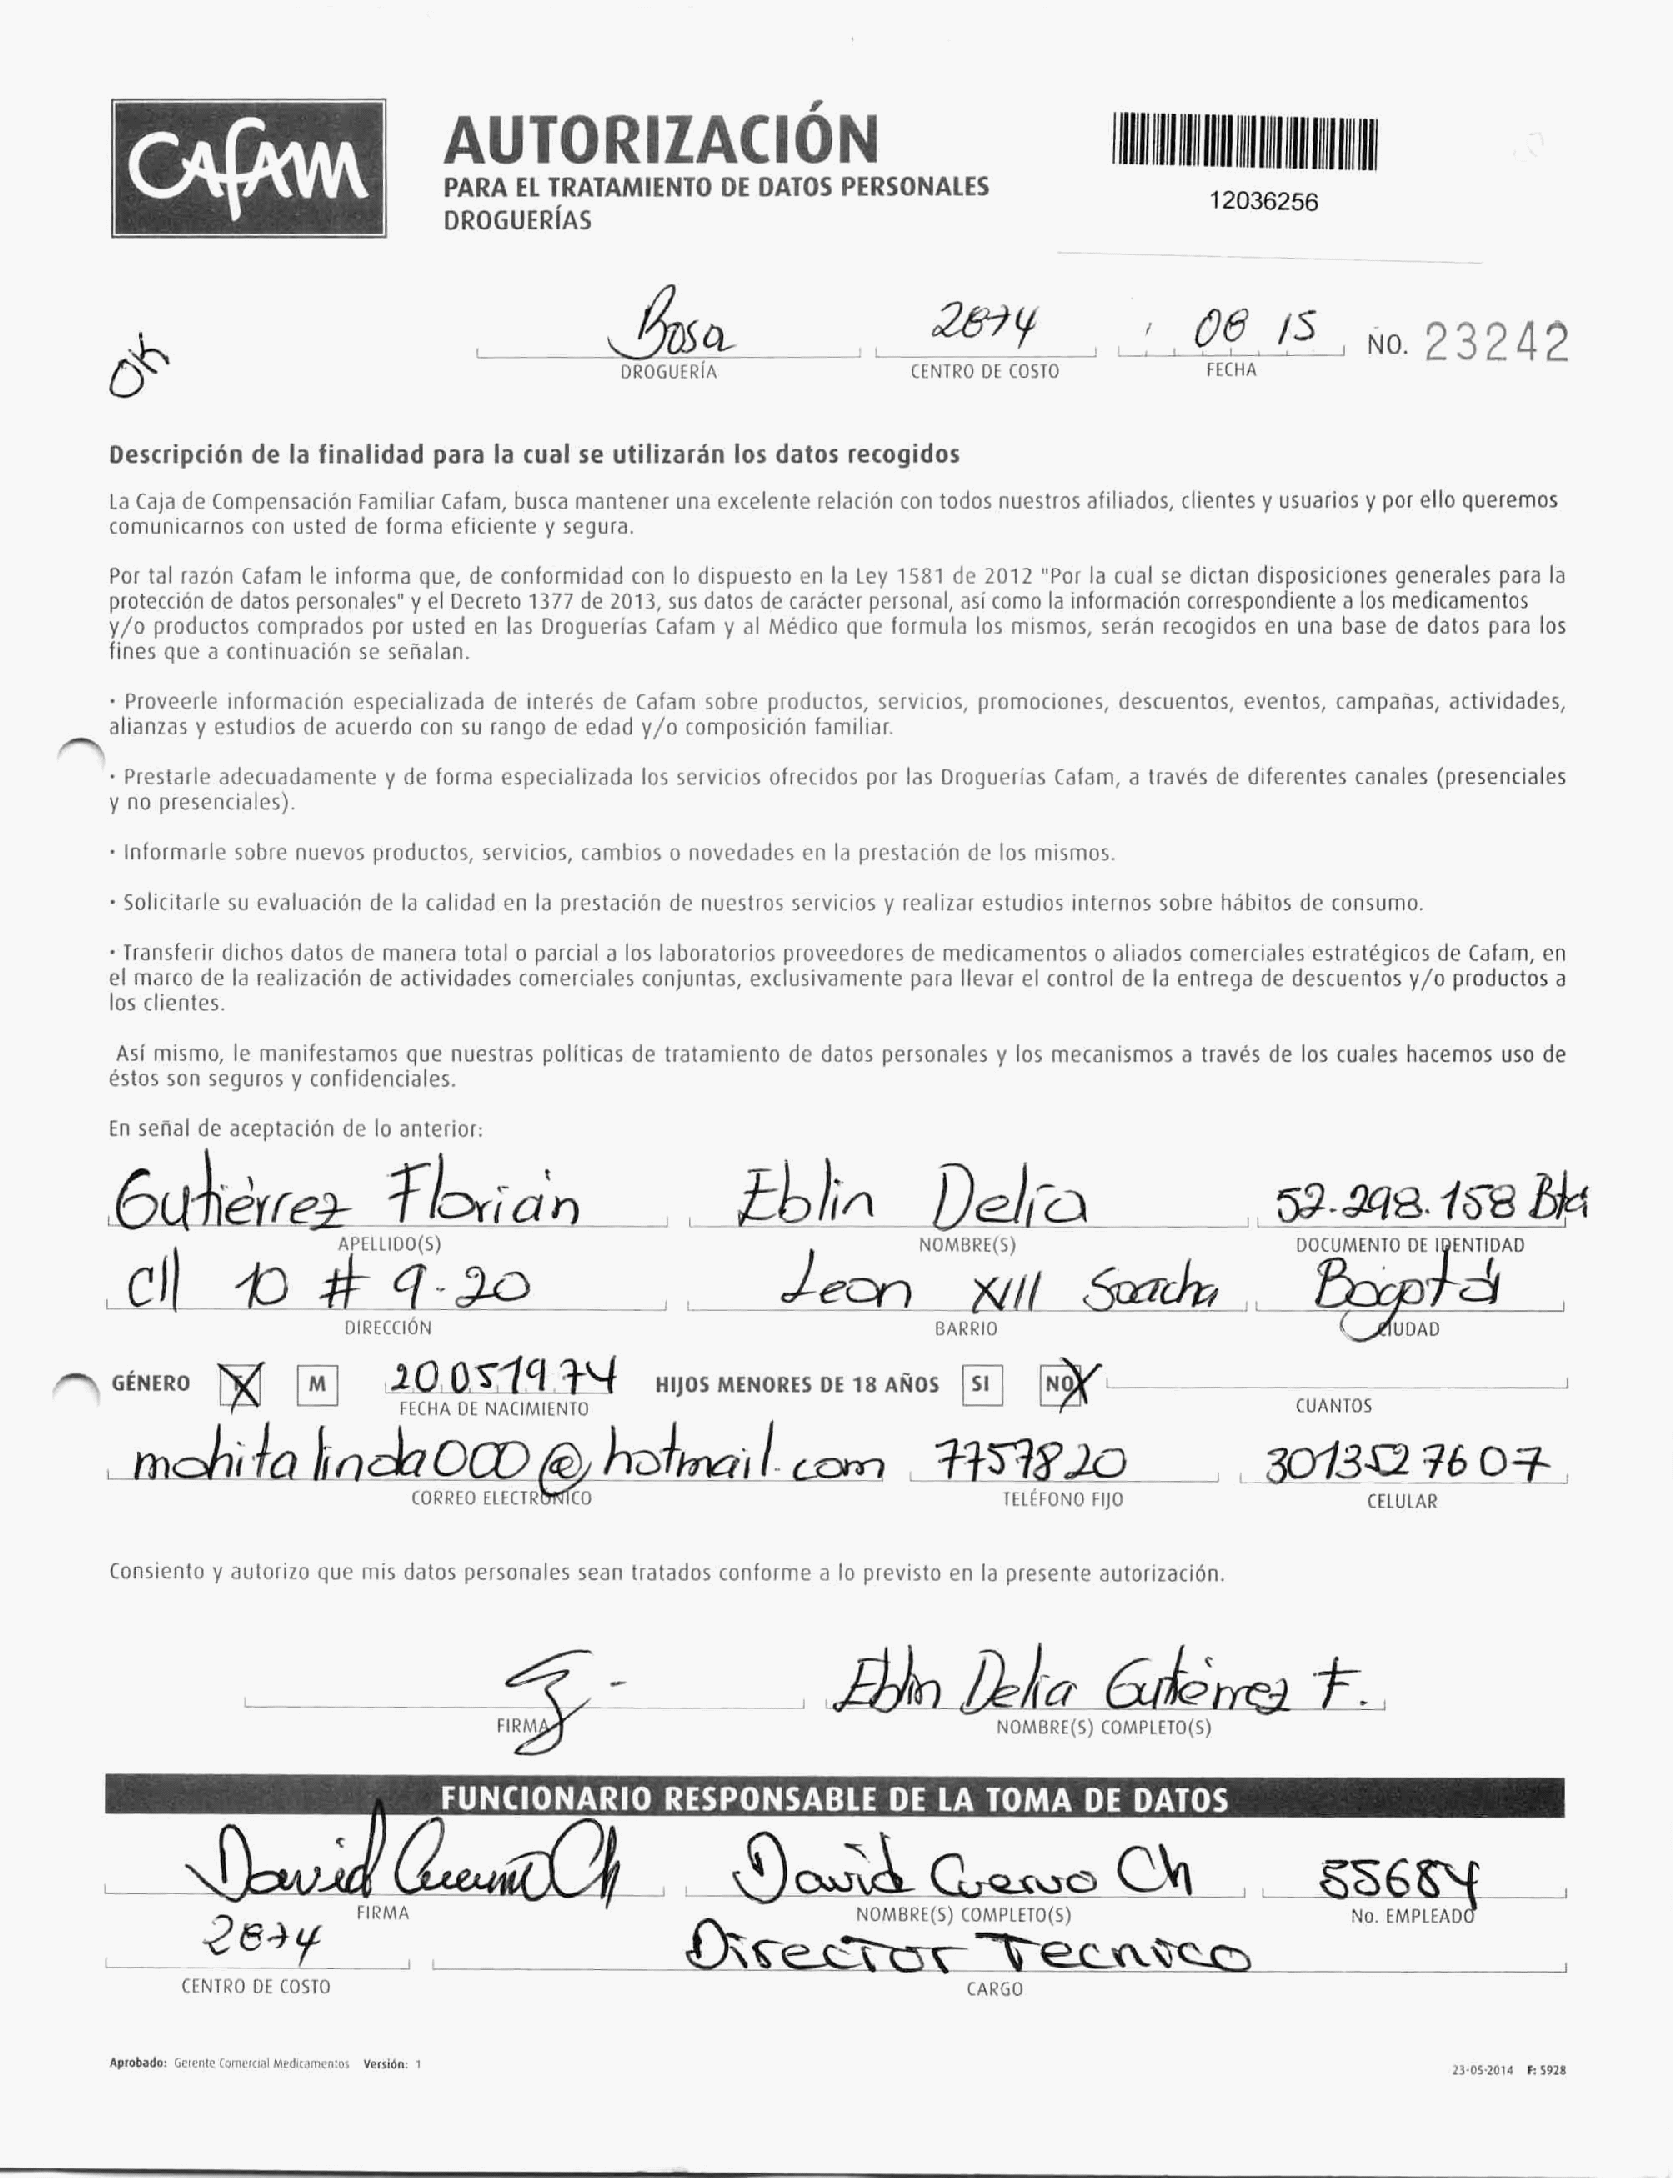 CAFAM
AUTORIZACIÓN
PARA EL TRATAMIENTO DE DATOS PERSONALES
DROGUERÍAS
12036256
OK
Bosa 2874 08 15 No. 23242
DROGUERÍA CENTRO DE COSTO FECHA
Descripción de la finalidad para la cual se utilizarán los datos recogidos
La Caja de Compensación Familiar Cafam, busca mantener una excelente relación con todos nuestros afiliados, clientes y usuarios y por ello queremos
comunicarnos con usted de forma eficiente y segura.
Por tal razón Cafam le informa que, de conformidad con lo dispuesto en la Ley 1581 de 2012 "Por la cual se dictan disposiciones generales para la
protección de datos personales" y el Decreto 1377 de 2013, sus datos de carácter personal, así como la información correspondiente a los medicamentos
y/o productos comprados por usted en las Droguerías Cafam y al Médico que formula los mismos, serán recogidos en una base de datos para los
fines que a continuación se señalan.
· Proveerle información especializada de interés de Cafam sobre productos, servicios, promociones, descuentos, eventos, campañas, actividades,
alianzas y estudios de acuerdo con su rango de edad y/o composición familiar.
· Prestarle adecuadamente y de forma especializada los servicios ofrecidos por las Droguerías Cafam, a través de diferentes canales (presenciales
y no presenciales).
· Informarle sobre nuevos productos, servicios, cambios o novedades en la prestación de los mismos.
· Solicitarle su evaluación de la calidad en la prestación de nuestros servicios y realizar estudios internos sobre hábitos de consumo.
· Transferir dichos datos de manera total o parcial a los laboratorios proveedores de medicamentos o aliados comerciales estratégicos de Cafam, en
el marco de la realización de actividades comerciales conjuntas, exclusivamente para llevar el control de la entrega de descuentos y/o productos a
los clientes.
Así mismo, le manifestamos que nuestras políticas de tratamiento de datos personales y los mecanismos a través de los cuales hacemos uso de
éstos son seguros y confidenciales.
En señal de aceptación de lo anterior:
Gutiérrez Florian Eblin Delia 52.298.158 Bta
APELLIDO(S) NOMBRE(S) DOCUMENTO DE IDENTIDAD
Cll 10 # 9-20 Leon XIII Soacha Bogotá
DIRECCIÓN BARRIO CIUDAD
GÉNERO X M 20051974 HIJOS MENORES DE 18 AÑOS SI NO X
FECHA DE NACIMIENTO CUANTOS
mohitalinda000@hotmail.com 7757820 3013527607
CORREO ELECTRÓNICO TELÉFONO FIJO CELULAR
Consiento y autorizo que mis datos personales sean tratados conforme a lo previsto en la presente autorización.
Eblin Delia Gutiérrez F.
FIRMA NOMBRE(S) COMPLETO(S)
FUNCIONARIO RESPONSABLE DE LA TOMA DE DATOS
David Cuervo Ch David Cuervo Ch 55684
FIRMA NOMBRE(S) COMPLETO(S) No. EMPLEADO
2874 Director Tecnico
CENTRO DE COSTO CARGO
Aprobado: Gerente Comercial Medicamentos Versión: 1
23-05-2014 F: 5928